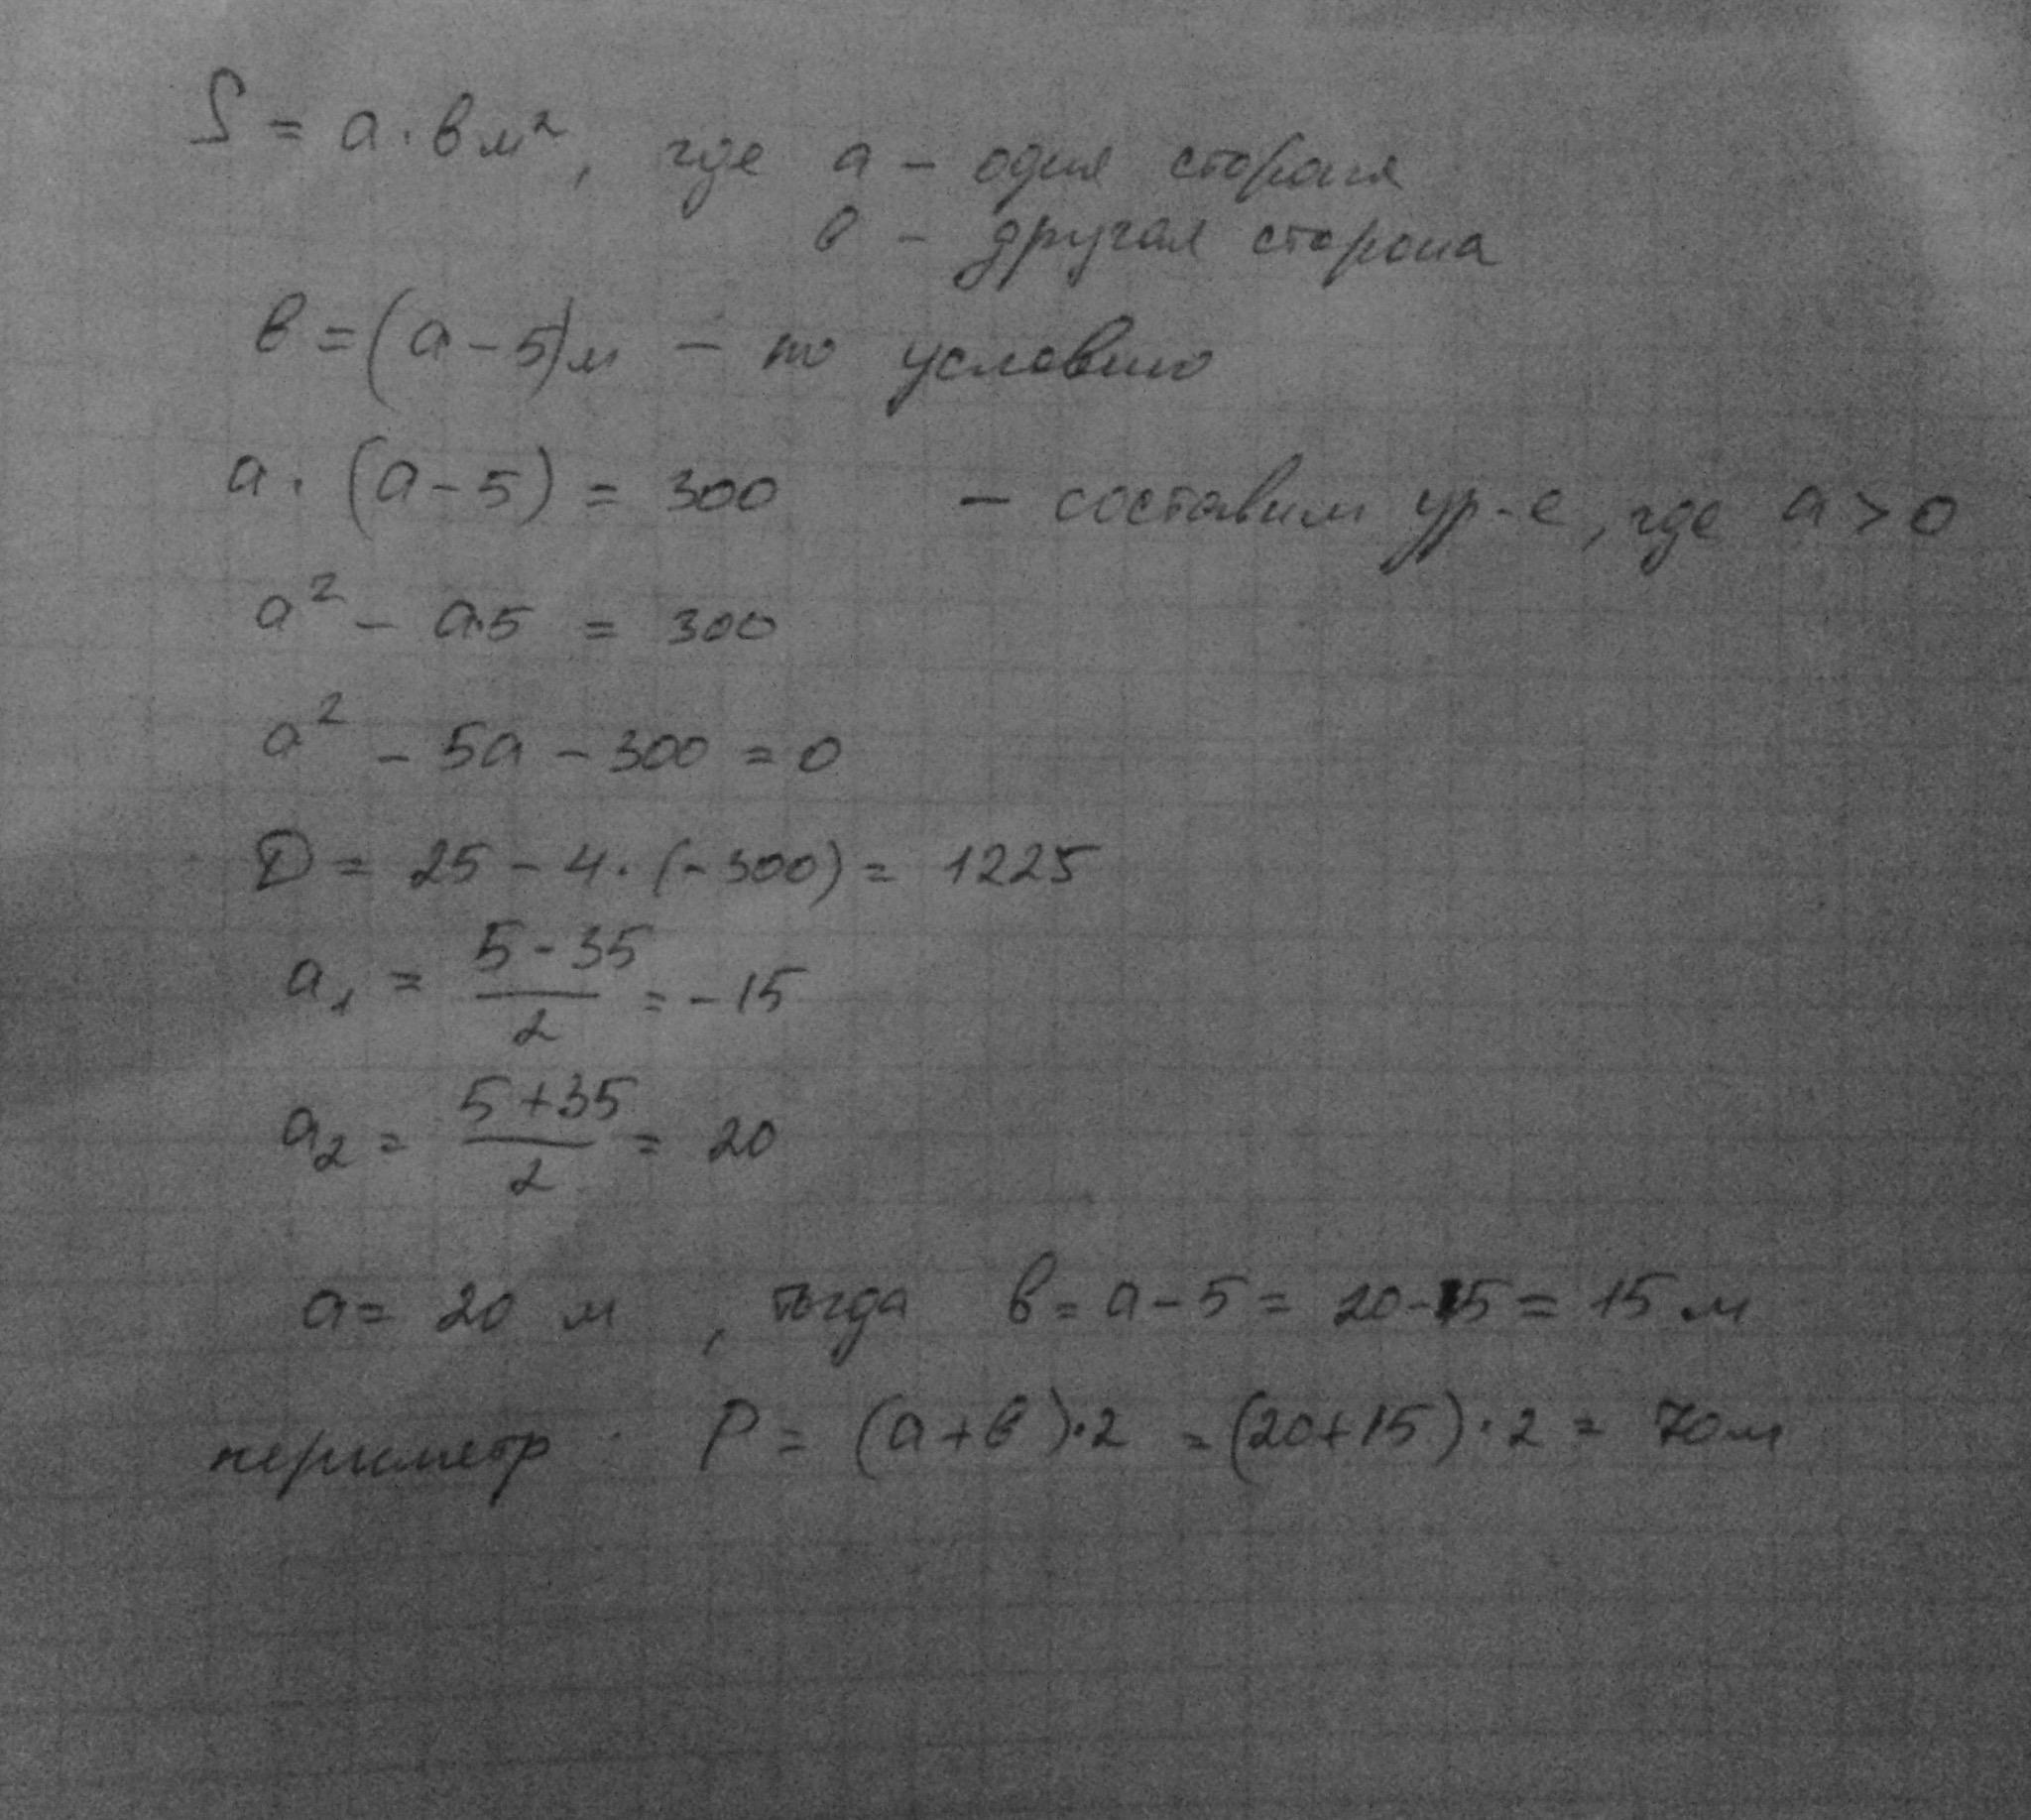 S = a · в м², где a – одна сторона
в – другая сторона
в = (a – 5)м – по условию
a · (a – 5) = 300 – составим ур-е, где a > 0
a² – a·5 = 300
a² – 5a – 300 = 0
D = 25 – 4 · (–300) = 1225
a₁ = (5 – 35)/2 = –15
a₂ = (5 + 35)/2 = 20
a = 20 м, тогда в = a – 5 = 20 – 5 = 15 м
периметр: P = (a + в)·2 = (20 + 15)·2 = 70 м